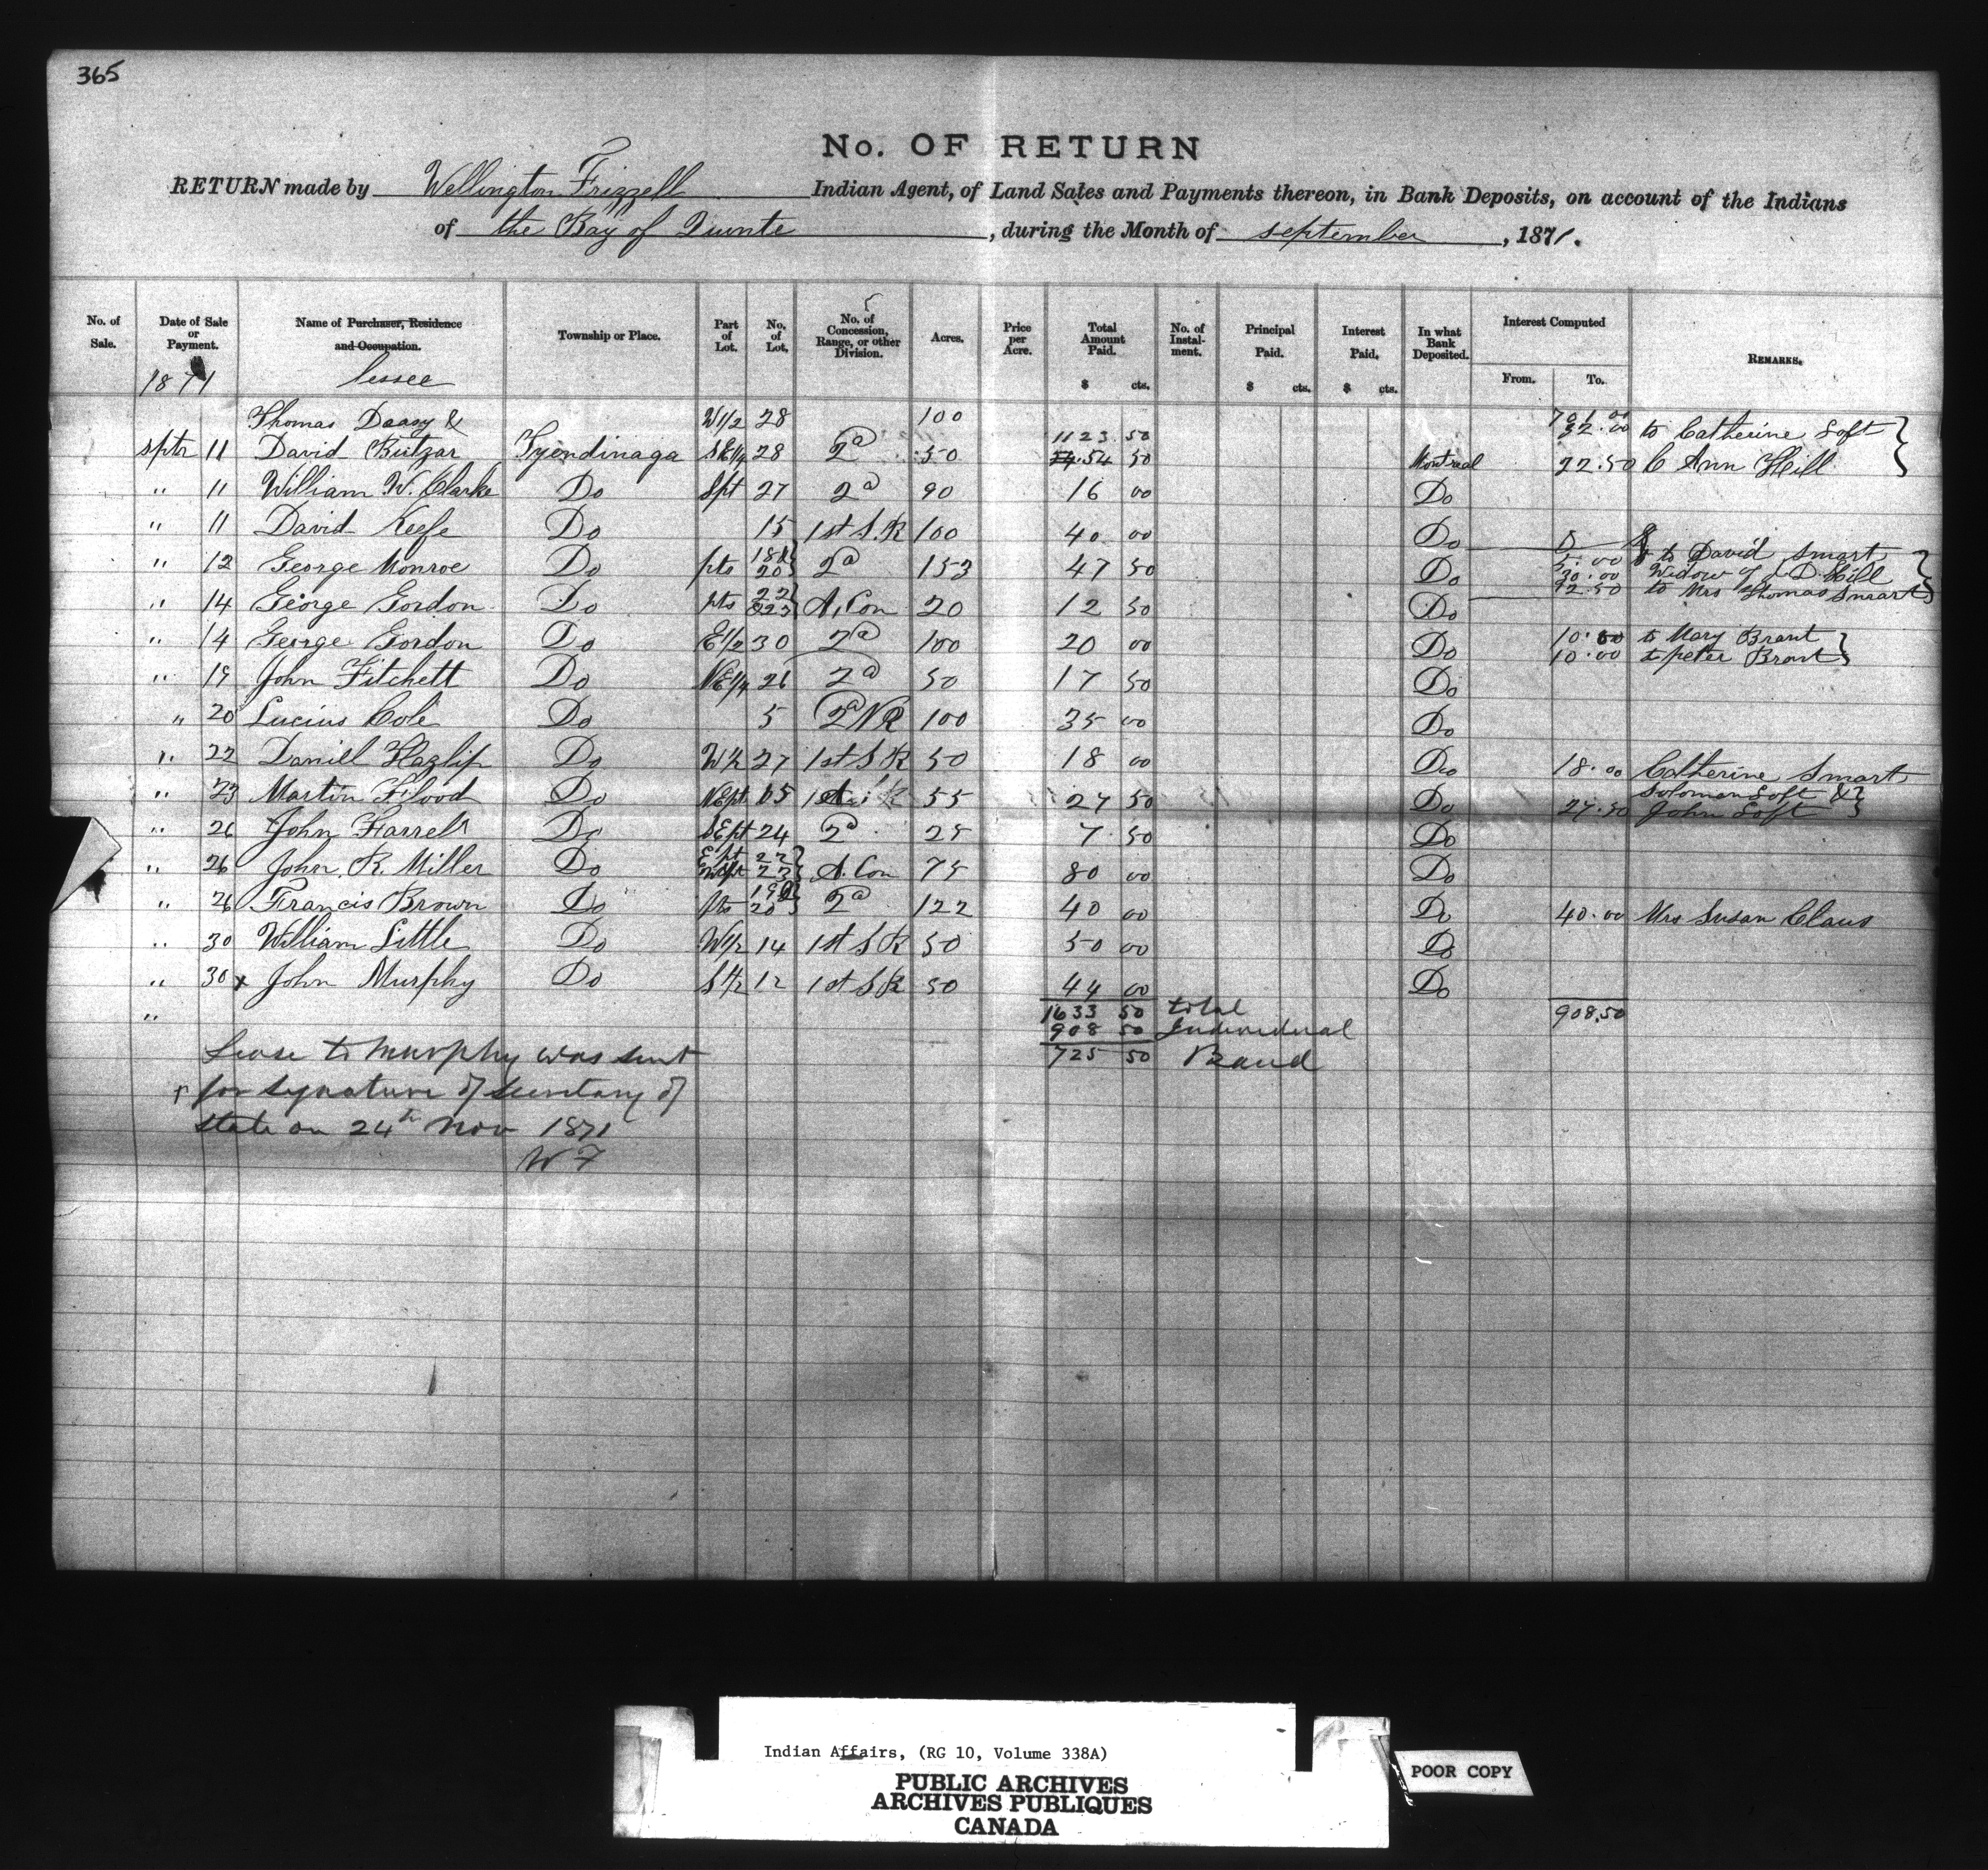 365
No. OF RETURN
RETURN made by Wellington Frizzell Indian Agent, of Land Sales and Payments thereon, in Bank Deposits, on account of the Indians
of the Bay of Quinte, during the Month of september, 1871.
No. of Sale. Date of Sale or Payment. Name of Purchaser, Residence and Occupation. Township or Place. Part of Lot. No. of Lot. No. of Concession, Range, or other Division. Acres. Price per Acre. Total Amount Paid. $ cts. No. of Instalment. Principal Paid. $ cts. Interest Paid. $ cts. In what Bank Deposited. Interest Computed From. To. REMARKS.
1871 lessee
Thomas Daasy & W 1/2 28 100 32.00 to Catherine Loft
sptr 11 David Butzar Tyendinaga S E 1/4 28 2d 50 1123 50 Montreal 22.50 C Ann Hill
" 11 William W. Clarke Do Spt 27 2d 90 16 00 Do
" 11 David Keefe Do 15 1st S.R 100 40 00 Do
to David Smart
" 12 George Monroe Do pts 20 2d 153 47 50 Do 30.00 Widow of D. Hill
12.50 to Mrs Thomas Smart
" 14 George Gordon Do pts 22 & 23 A, Con 20 12 50 Do
" 14 George Gordon Do E 1/2 30 2d 100 20 00 Do 10.00 to Mary Brant
10.00 to peter Brant
" 19 John Fitchett Do NE 1/4 26 2d 50 17 50 Do
" 20 Lucius Cole Do 5 2d N R 100 35 00 Do
" 22 Daniell Hazlip Do W 1/2 27 1st S R 50 18 00 Do 18.00 Catherine Smart
" 23 Martin Flood Do NE pt 15 55 27 50 Do 27.50 Solomon Loft & John Loft
" 26 John Farrell Do SE pt 24 2d 25 7 50 Do
" 26 John R. Miller Do E pt 22 W pt 23 A. Con 75 80 00 Do
" 26 Francis Brown Do pts 19 & 20 2d 122 40 00 Do 40.00 Mrs Susan Claus
" 30 William Little Do W 1/2 14 1st S R 50 50 00 Do
" 30 x John Murphy Do S 1/2 12 1st S R 50 44 00 Do
" 1633 50 total 908.50
908 50 Individual
725 50 Band
Lease to Murphy was sent
x for signature of secretary of
state on 24th Nov 1871
W F
Indian Affairs, (RG 10, Volume 338A)
PUBLIC ARCHIVES
ARCHIVES PUBLIQUES
CANADA
POOR COPY